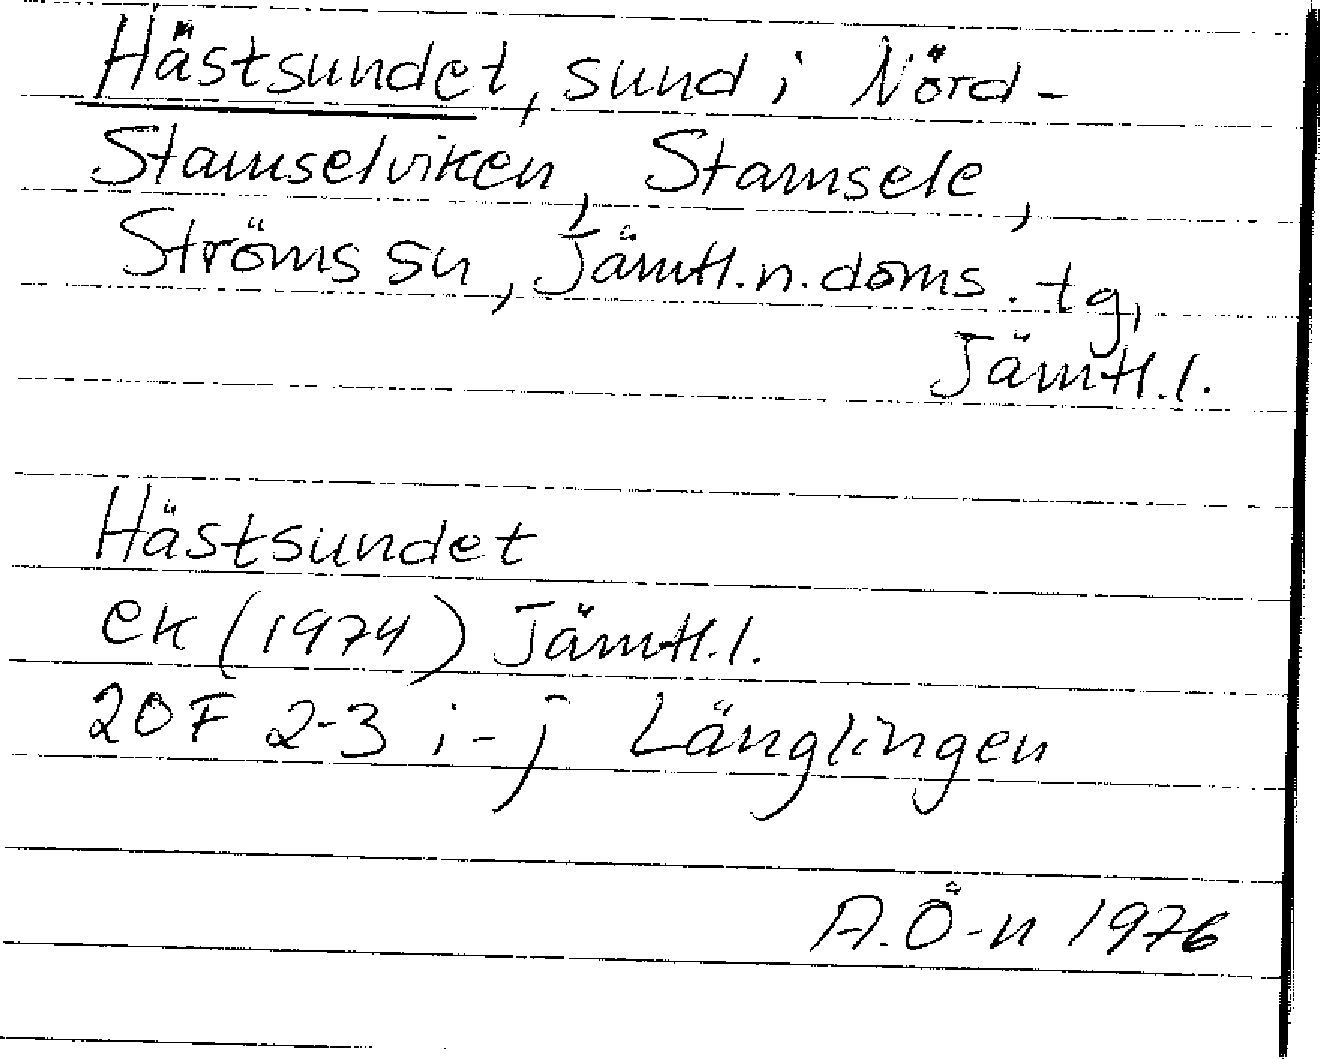 Hästsundet, sund i Nörd-
Stamselviken, Stamsele,
Ströms sn, Jämtl. n. doms. tg,
Jämtl. l.
Hästsundet
ek (1974) Jämtl. l.
20F 2-3 i-j Länglingen
A. Ö-n 1976